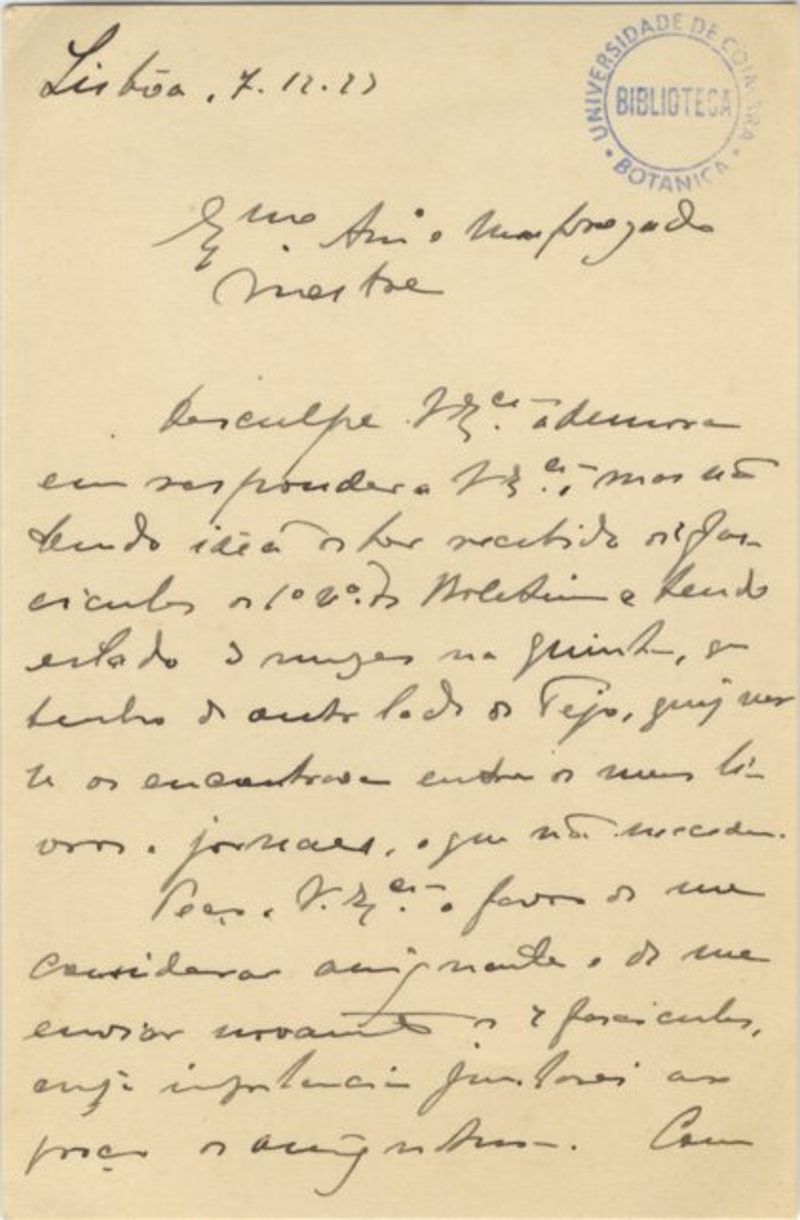 Lisbôa, 7.12.23
UNIVERSIDADE DE COIMBRA
BIBLIOTECA
BOTANICA
Exmo Amo e
Mestre
Desculpe V. Ex.cia a demora
em responder a V. Ex.cia, mas não
tendo idéa de ter recebido os 2 fas-
ciculos do 1º vol. do Boletim e tendo
estado 3 mezes na quinta, que
tenho do outro lado do Tejo, quiz ver
se os encontrava entre os meus li-
vros e jornaes, o que não succedeu.
Peço a V. Ex.cia o favor de me
considerar assignante e de me
enviar novamente os 2 fasciculos,
cuja importancia juntarei ao
preço da assignatura. Com